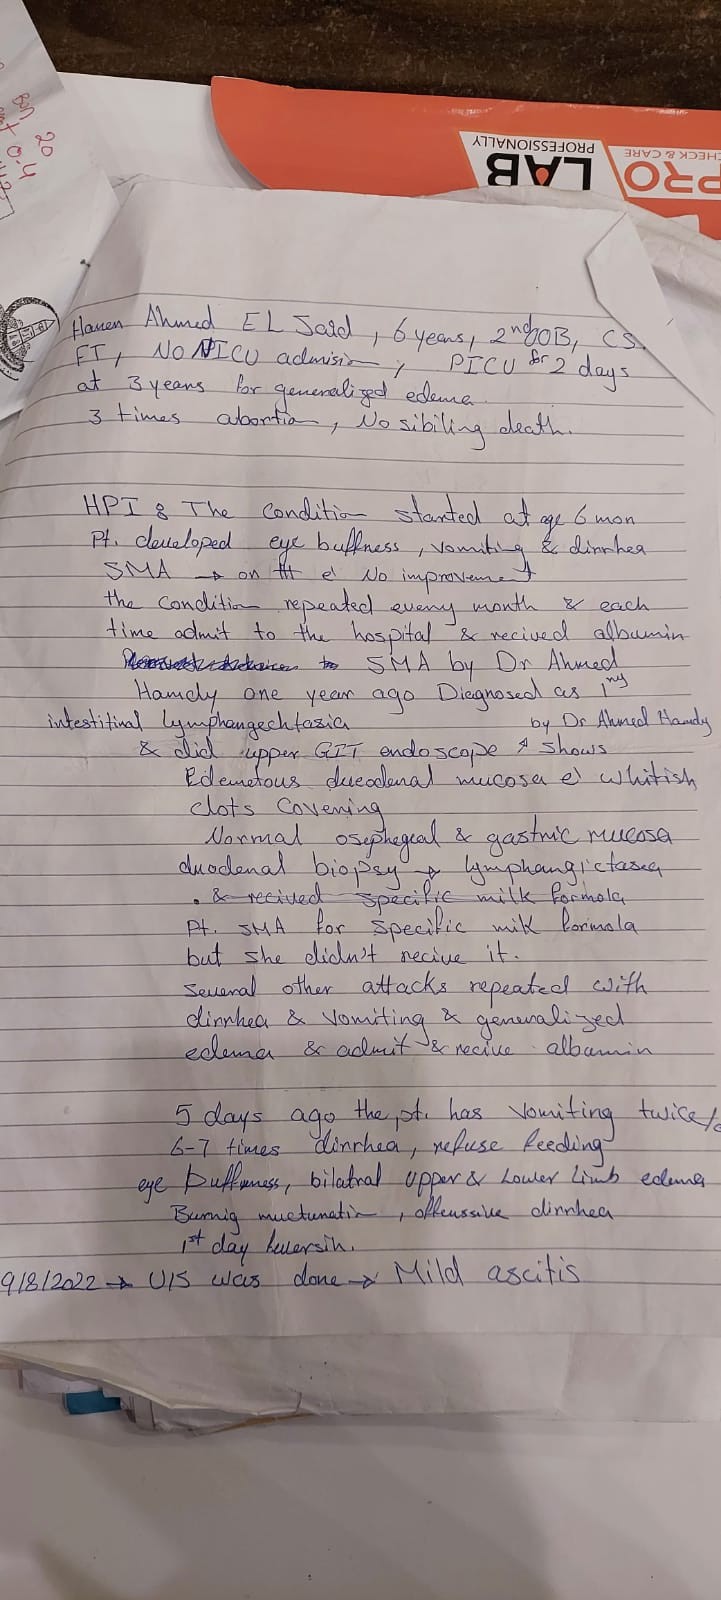 20
0.4
CHECK & CARE
PROFESSIONALLY
PRO LAB
Hanen Ahmed EL Said, 6 years, 2nd OB, CS.
FT, NO NICU admision, PICU for 2 days
at 3 years for generalized edema.
3 times abortion, No sibiling death.
HPI : The condition started at age 6 mon
Pt. developed eye buffness, vomiting & dirrhea
SMA → on ttt e' No improvement
the condition repeated every month & each
time admit to the hospital & recived albumin
to SMA by Dr Ahmed
Hamdy one year ago Diegnosed as 1ry
intestitinal lymphangechtasia by Dr Ahmed Hamdy
& did upper GIT endoscope & shows
Edemetous dueodenal mucosa e' whitish
clots covening
Normal osephegeal & gastric mucosa
duodenal biopsy → lymphangictasea
. & recived specific milk formola
Pt. SMA for specific milk formola
but she didn't recive it.
several other attacks repeated with
dirrhea & vomiting & generalized
edema & admit & recive albumin
5 days ago the pt. has vomiting twice/d
6-7 times dirrhea, refuse feeding
eye buffness, bilatral upper & Lower Limb edema
Burnig muctunatin, offenssive dirrhea
1st day feversih.
9/8/2022 → U/S was done → Mild ascitis